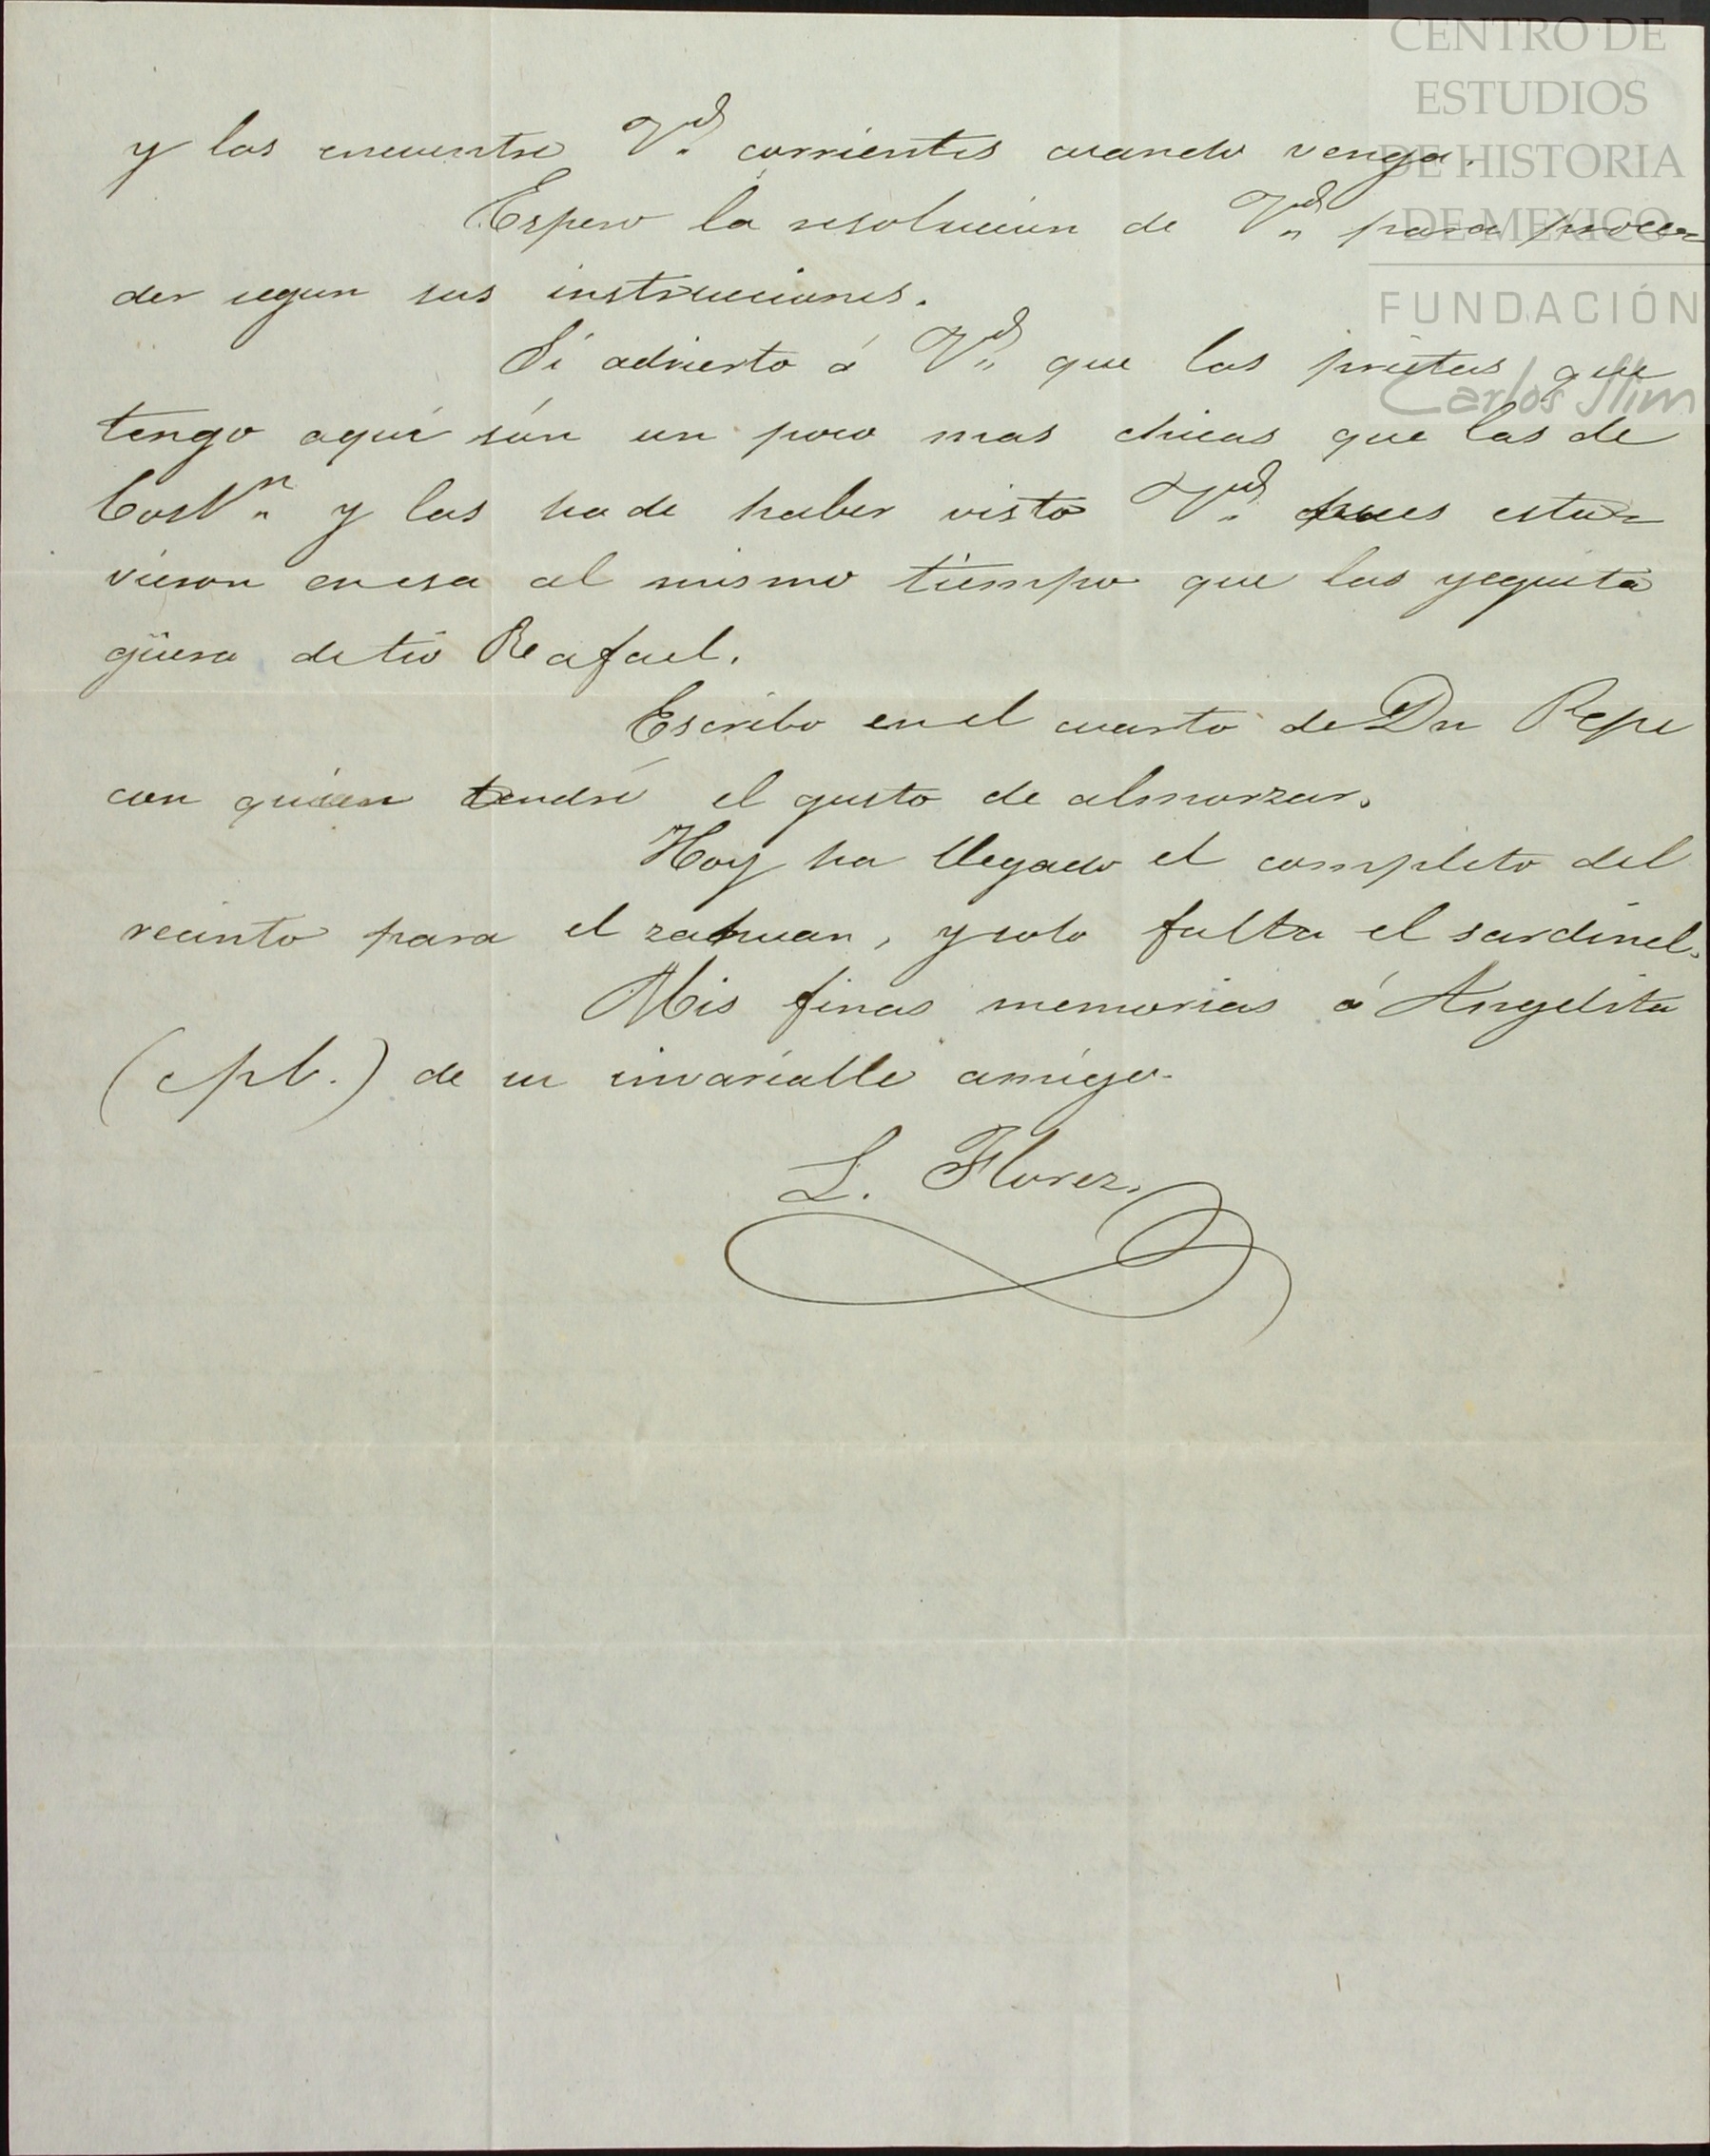 CENTRO DE
ESTUDIOS
DE HISTORIA
DE MEXICO
FUNDACIÓN
Carlos Slim
y las encuentre Vd. corrientes cuando venga.
Espero la resolucion de Vd. para proce=
der segun sus instrucciones.
Sí advierto á Vd. que las prietas que
tengo aquí són un poco mas chicas que las de
y las ha de haber visto Vd. pues estu=
vieron en esa al mismo tiempo que las yeguita
güera de tio Rafael.
Escribo en el cuarto de Dn Pepe
con quien tendré el gusto de almorzar.
Hoy ha llegado el completo del
recinto para el zahuan, y solo falta el sardinel.
Mis finas memorias á Angelita
(cpb.) de su invariable amigo.
L. Florez.